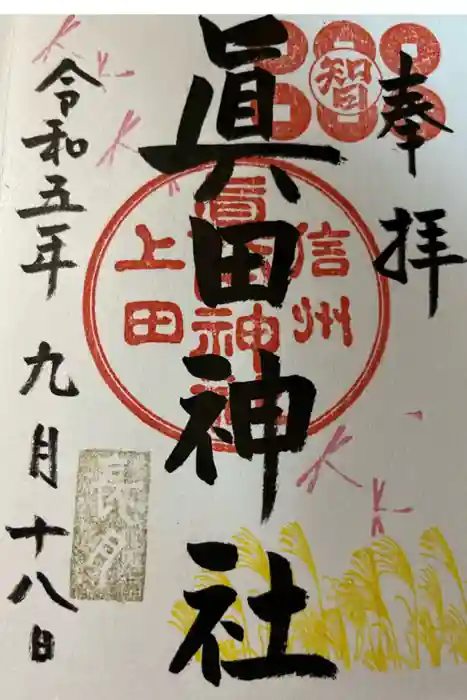 奉拝
智
眞田神社
信州
眞田神社
上田
令和五年
九月十八日